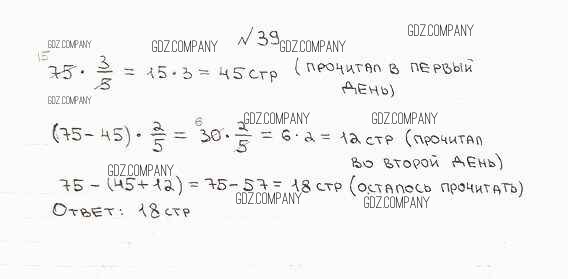 GDZ.COMPANY
№ 39
GDZ.COMPANY GDZ.COMPANY GDZ.COMPANY
15
75 · 3/5 = 15 · 3 = 45 стр (прочитал в первый
день)
GDZ.COMPANY
GDZ.COMPANY GDZ.COMPANY
6
(75 - 45) · 2/5 = 30 · 2/5 = 6 · 2 = 12 стр (прочитал
во второй день)
GDZ.COMPANY
75 - (45 + 12) = 75 - 57 = 18 стр (осталось прочитать)
GDZ.COMPANY GDZ.COMPANY
Ответ: 18 стр